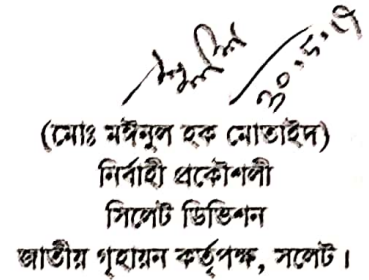 (মোঃ মঈনুল হক মোতাইদ)
নির্বাহী প্রকৌশলী
সিলেট ডিভিশন
জাতীয় গৃহায়ন কর্তৃপক্ষ, সলেট।